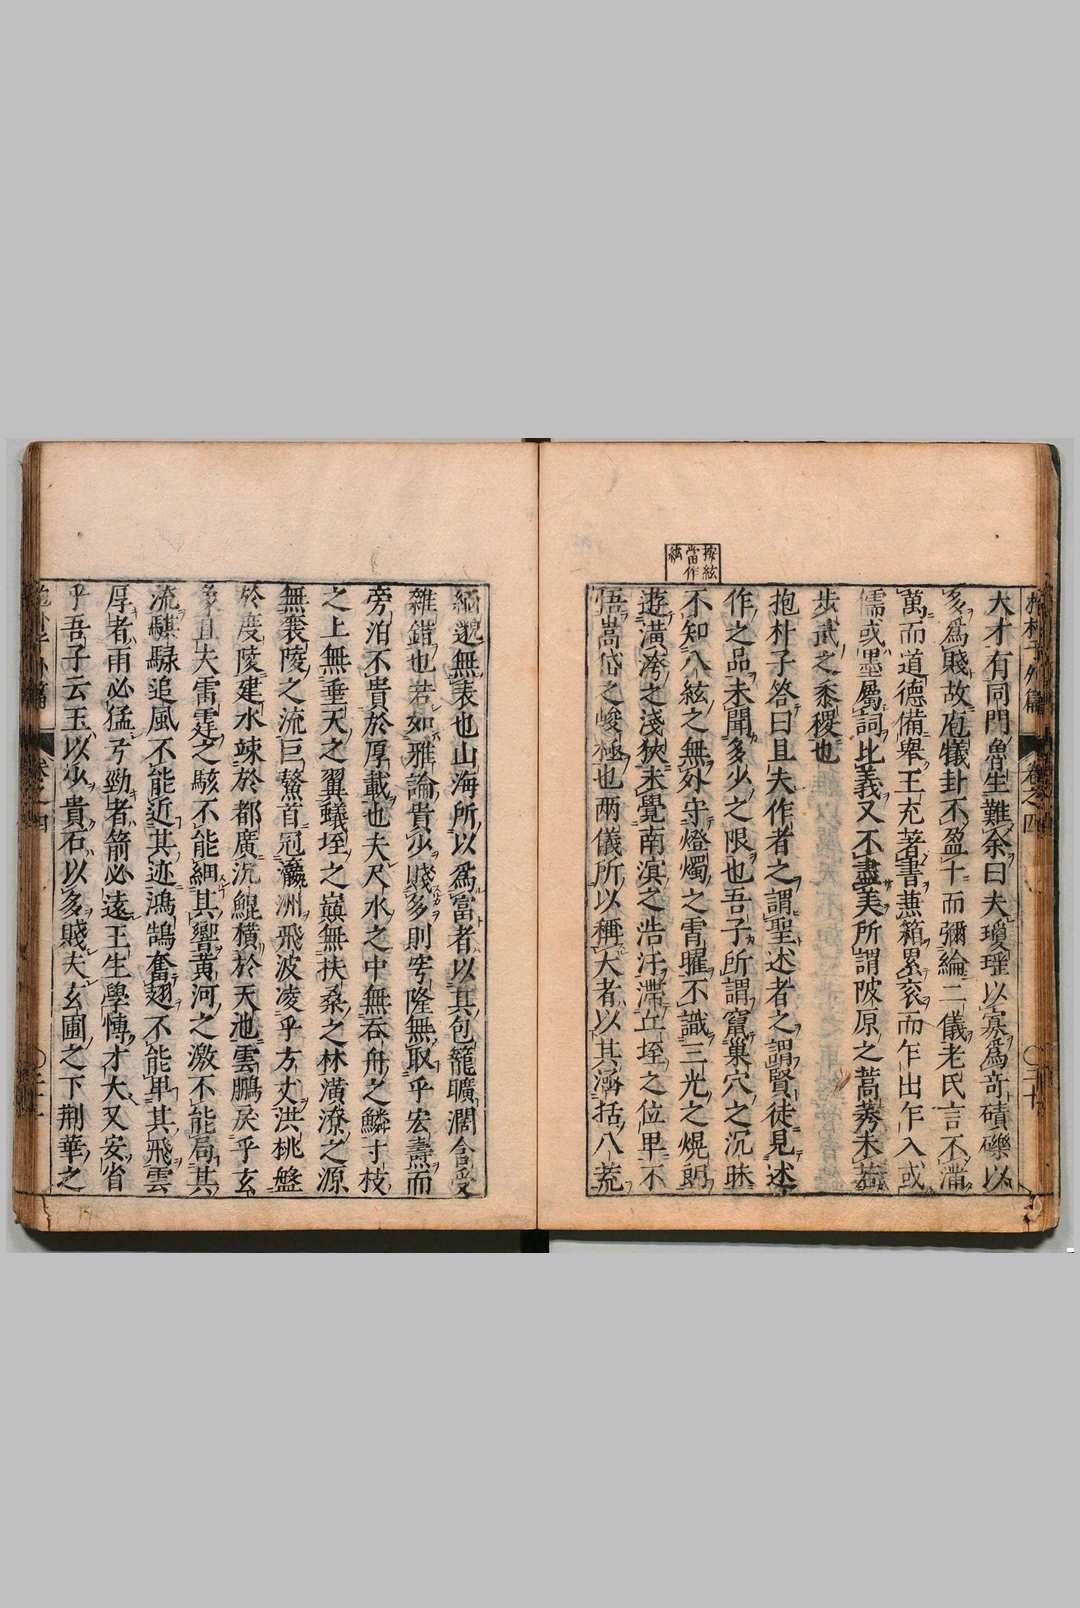 抱朴子外篇 卷之四 ○三十
大才有同門魯生難余曰夫瓊瑤以寡為奇磧礫以
多爲賤故庖犧卦不盈十而彌綸二儀老氏言不滿
萬而道德備舉王充著書兼箱累袠而乍出乍入或
儒或墨屬詞比義又不盡美所謂陂原之蒿莠未若
步武之黍稷也
抱朴子答曰且夫作者之謂聖述者之謂賢徒見述
作之品未聞多少之限也吾子所謂竄巢穴之沉昧
不知八絃之無外守燈燭之霄曜不識三光之熀朗
遊潢洿之淺狹未覺南溟之浩汗滯丘垤之位卑不
悟嵩岱之峻極也兩儀所以稱大者以其涵括八荒
按絃
當作
紘
緬邈無表也山海所以為富者以其包籠曠濶含受
雜錯也若如雅論貴少賤多則穹隆無取乎宏燾而
旁泊不貴於厚載也夫尺水之中無吞舟之鱗寸枝
之上無垂天之翼蟻垤之巔無扶桑之林潢潦之源
無襄陵之流巨鰲首冠瀛洲飛波凌乎方丈洪桃盤
於度陵建木竦於都廣沉鯤橫於天池雲鵬戾乎玄
象且夫雷霆之駭不能細其響黃河之激不能局其
流騏騄追風不能近其迹鴻鵠奮翅不能卑其飛雲
厚者雨必猛弓勁者箭必遠王生學博才大又安省
乎吾子云玉以少貴石以多賤夫玄圃之下荆華之
抱朴子外篇 卷之四 ○三十一